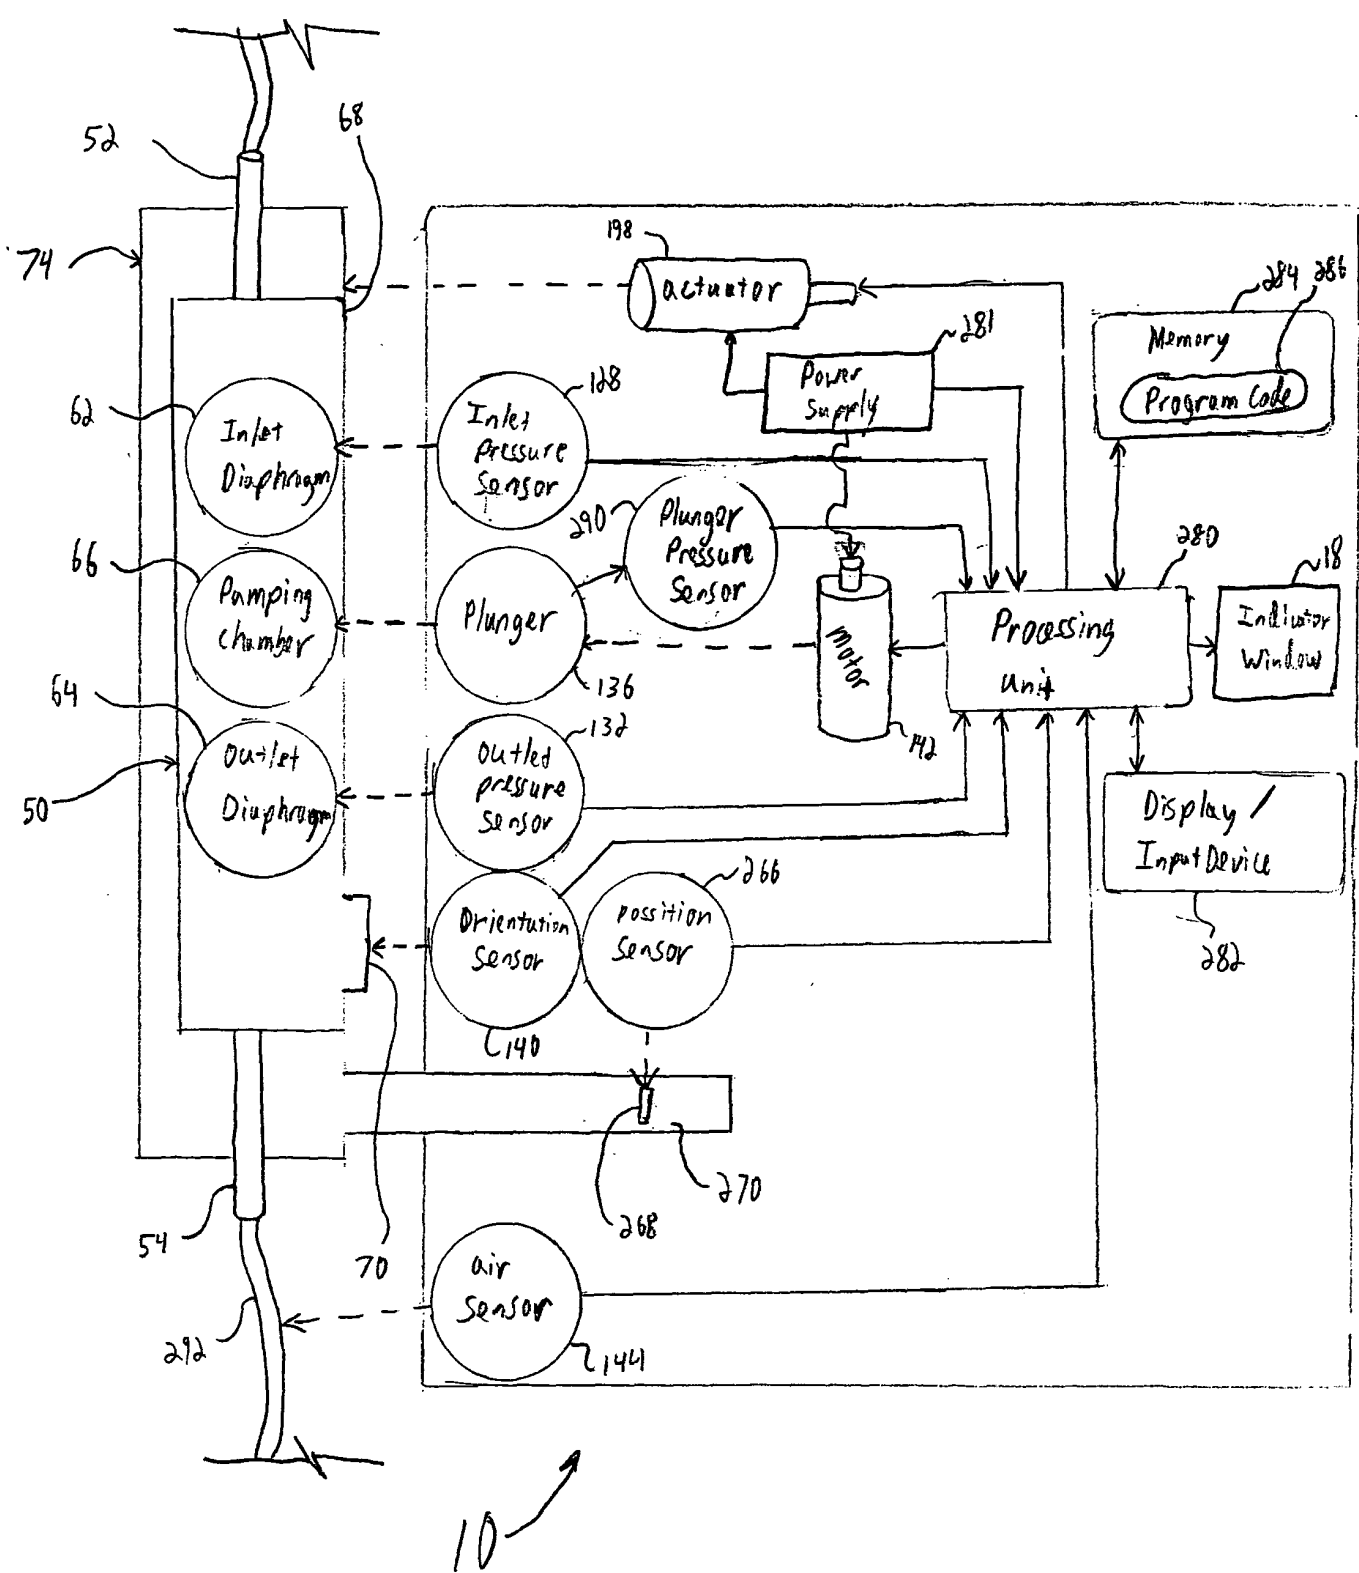 52
68
74
198
actuator
284
286
Memory
Program Code
281
Power
Supply
62
Inlet
Diaphragm
128
Inlet
Pressure
Sensor
290
Plunger
Pressure
Sensor
66
Pumping
Chamber
Plunger
136
motor
142
280
Processing
unit
18
Indicator
Window
64
Outlet
Diaphragm
50
132
Outlet
pressure
Sensor
Display /
Input Device
282
Orientation
Sensor
140
266
possition
sensor
268
270
54
70
air
sensor
144
292
10